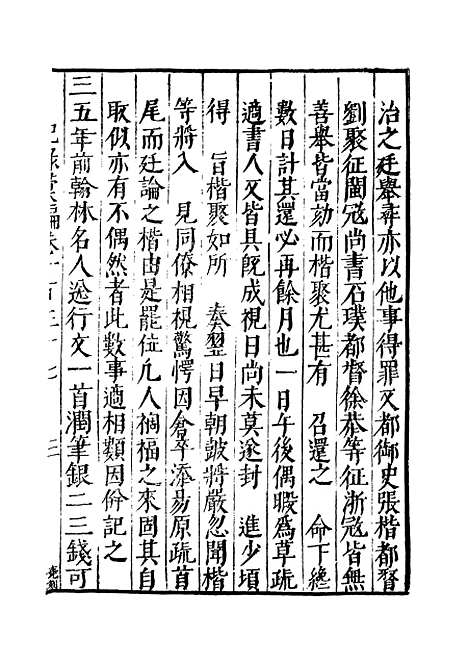 治之廷舉尋亦以他事得罪又都御史張楷都督
劉聚征閩寇尚書石璞都督徐恭等征浙寇皆無
善舉皆當劾而楷聚尤甚有　召還之　命下纔
數日計其還必再餘月也一日午後偶暇爲草疏
適書人又皆具旣成視日尚未莫遂封　進少頃
得　旨楷聚如所　奏翌日早朝皷將嚴忽聞楷
等將入　見同僚相視驚愕因倉卒添易原疏首
尾而廷論之楷由是罷位凢人禍福之來固其自
取似亦有不偶然者此數事適相類因倂記之
三五年前翰林名人送行文一首潤筆銀二三錢可
紀錄彙編卷一百三十七
三